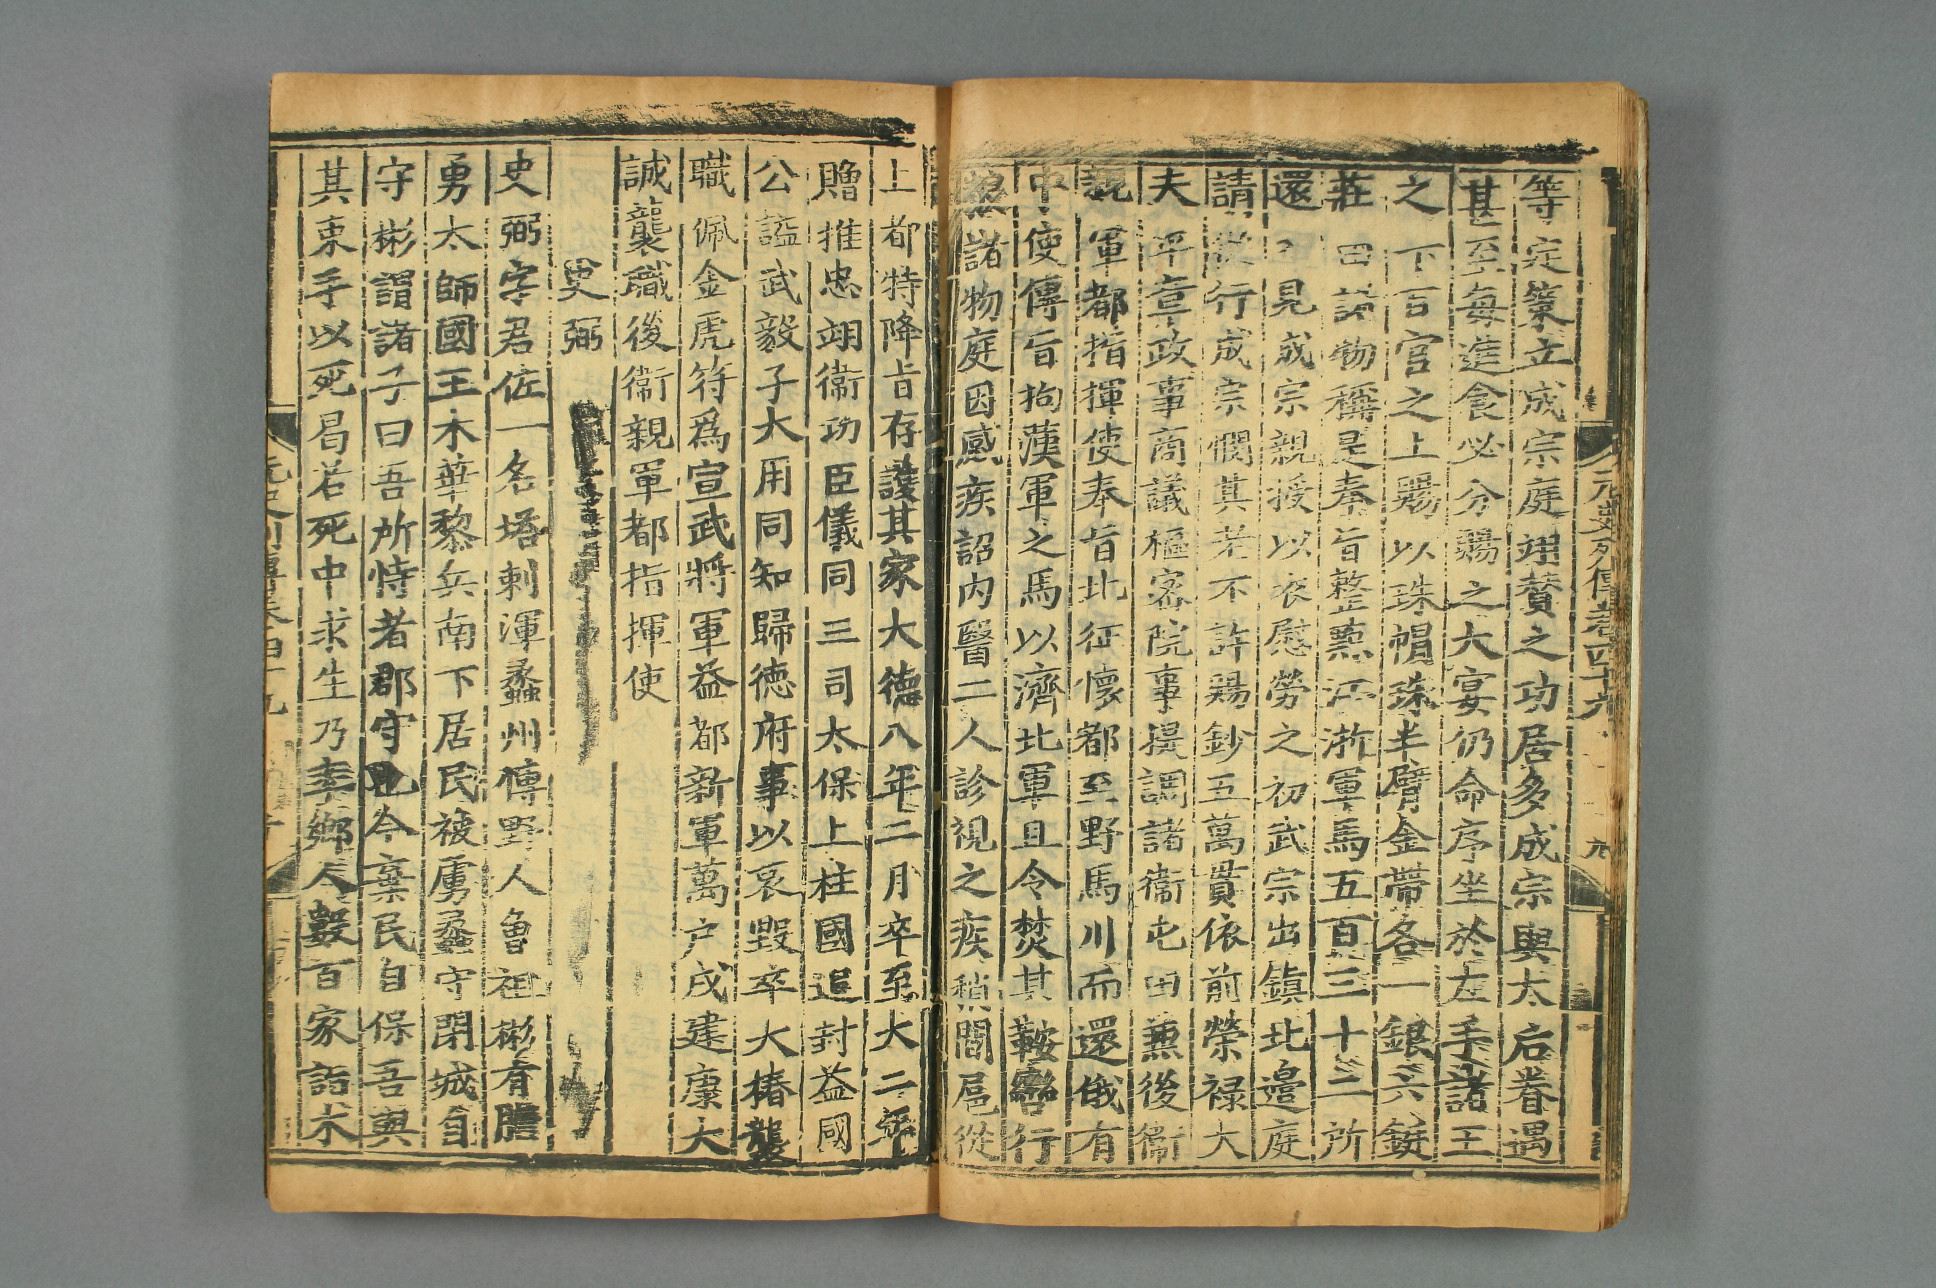 等定策立成宗庭翊贊之功居多成宗與太后眷遇
甚至每進食必分賜之大宴仍命序坐於左手諸王
之下百官之上賜以珠帽珠半臂金帶各一銀六鋌
莊田諸物稱是奉旨整點江浙軍馬五百三十二所
還入見成宗親授以衣慰勞之初武宗出鎮北邊庭
請從行成宗憫其老不許賜鈔五萬貫依前榮祿大
夫平章政事商議樞密院事提調諸衞屯田兼後衞
親軍都指揮使奉旨北征懷都至野馬川而還俄有
中使傳旨拘漢軍之馬以濟北軍且令焚其鞍轡行
糇諸物庭因感疾詔内醫二人診視之疾稍間扈從
上都特降旨存護其家大德八年二月卒至大二年
贈推忠翊衞功臣儀同三司太保上柱國追封益國
公諡武毅子大用同知歸德府事以哀毀卒大椿襲
職佩金虎符爲宣武將軍益都新軍萬户戍建康大
誠襲職後衞親軍都指揮使
史弼
史弼字君佐一名塔剌渾蠡州博野人曾祖彬有膽
勇太師國王木華黎兵南下居民被虜蠡守閉城自
守彬謂諸子曰吾所恃者郡守也今棄民自保吾與
其束手以死曷若死中求生乃率鄉人數百家詣木